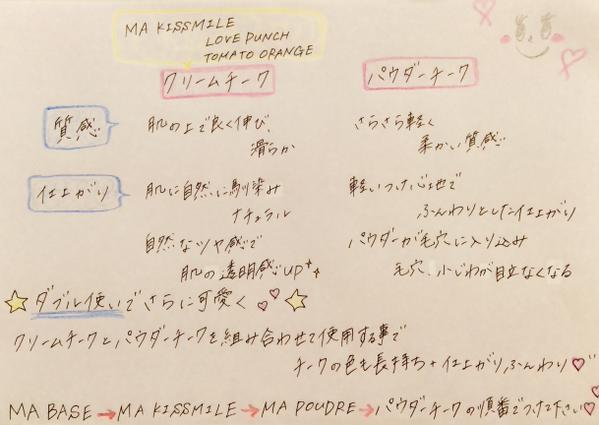 MA KISSMILE
LOVE PUNCH
TOMATO ORANGE
クリームチーク
パウダーチーク
質感
肌の上で良く伸び、
滑らか
さらさら軽く
柔かい質感
仕上がり
肌に自然に馴染み
ナチュラル
自然なツヤ感で
肌の透明感UP
軽いつけ心地で
ふんわりとした仕上がり
パウダーが毛穴に入り込み
毛穴、小じわが目立なくなる
ダブル使いでさらに可愛く
クリームチークとパウダーチークを組み合わせて使用する事で
チークの色も長持ち+仕上がりふんわり
MA BASE→MA KISSMILE→MA POUDRE→パウダーチークの順番でつけて下さい